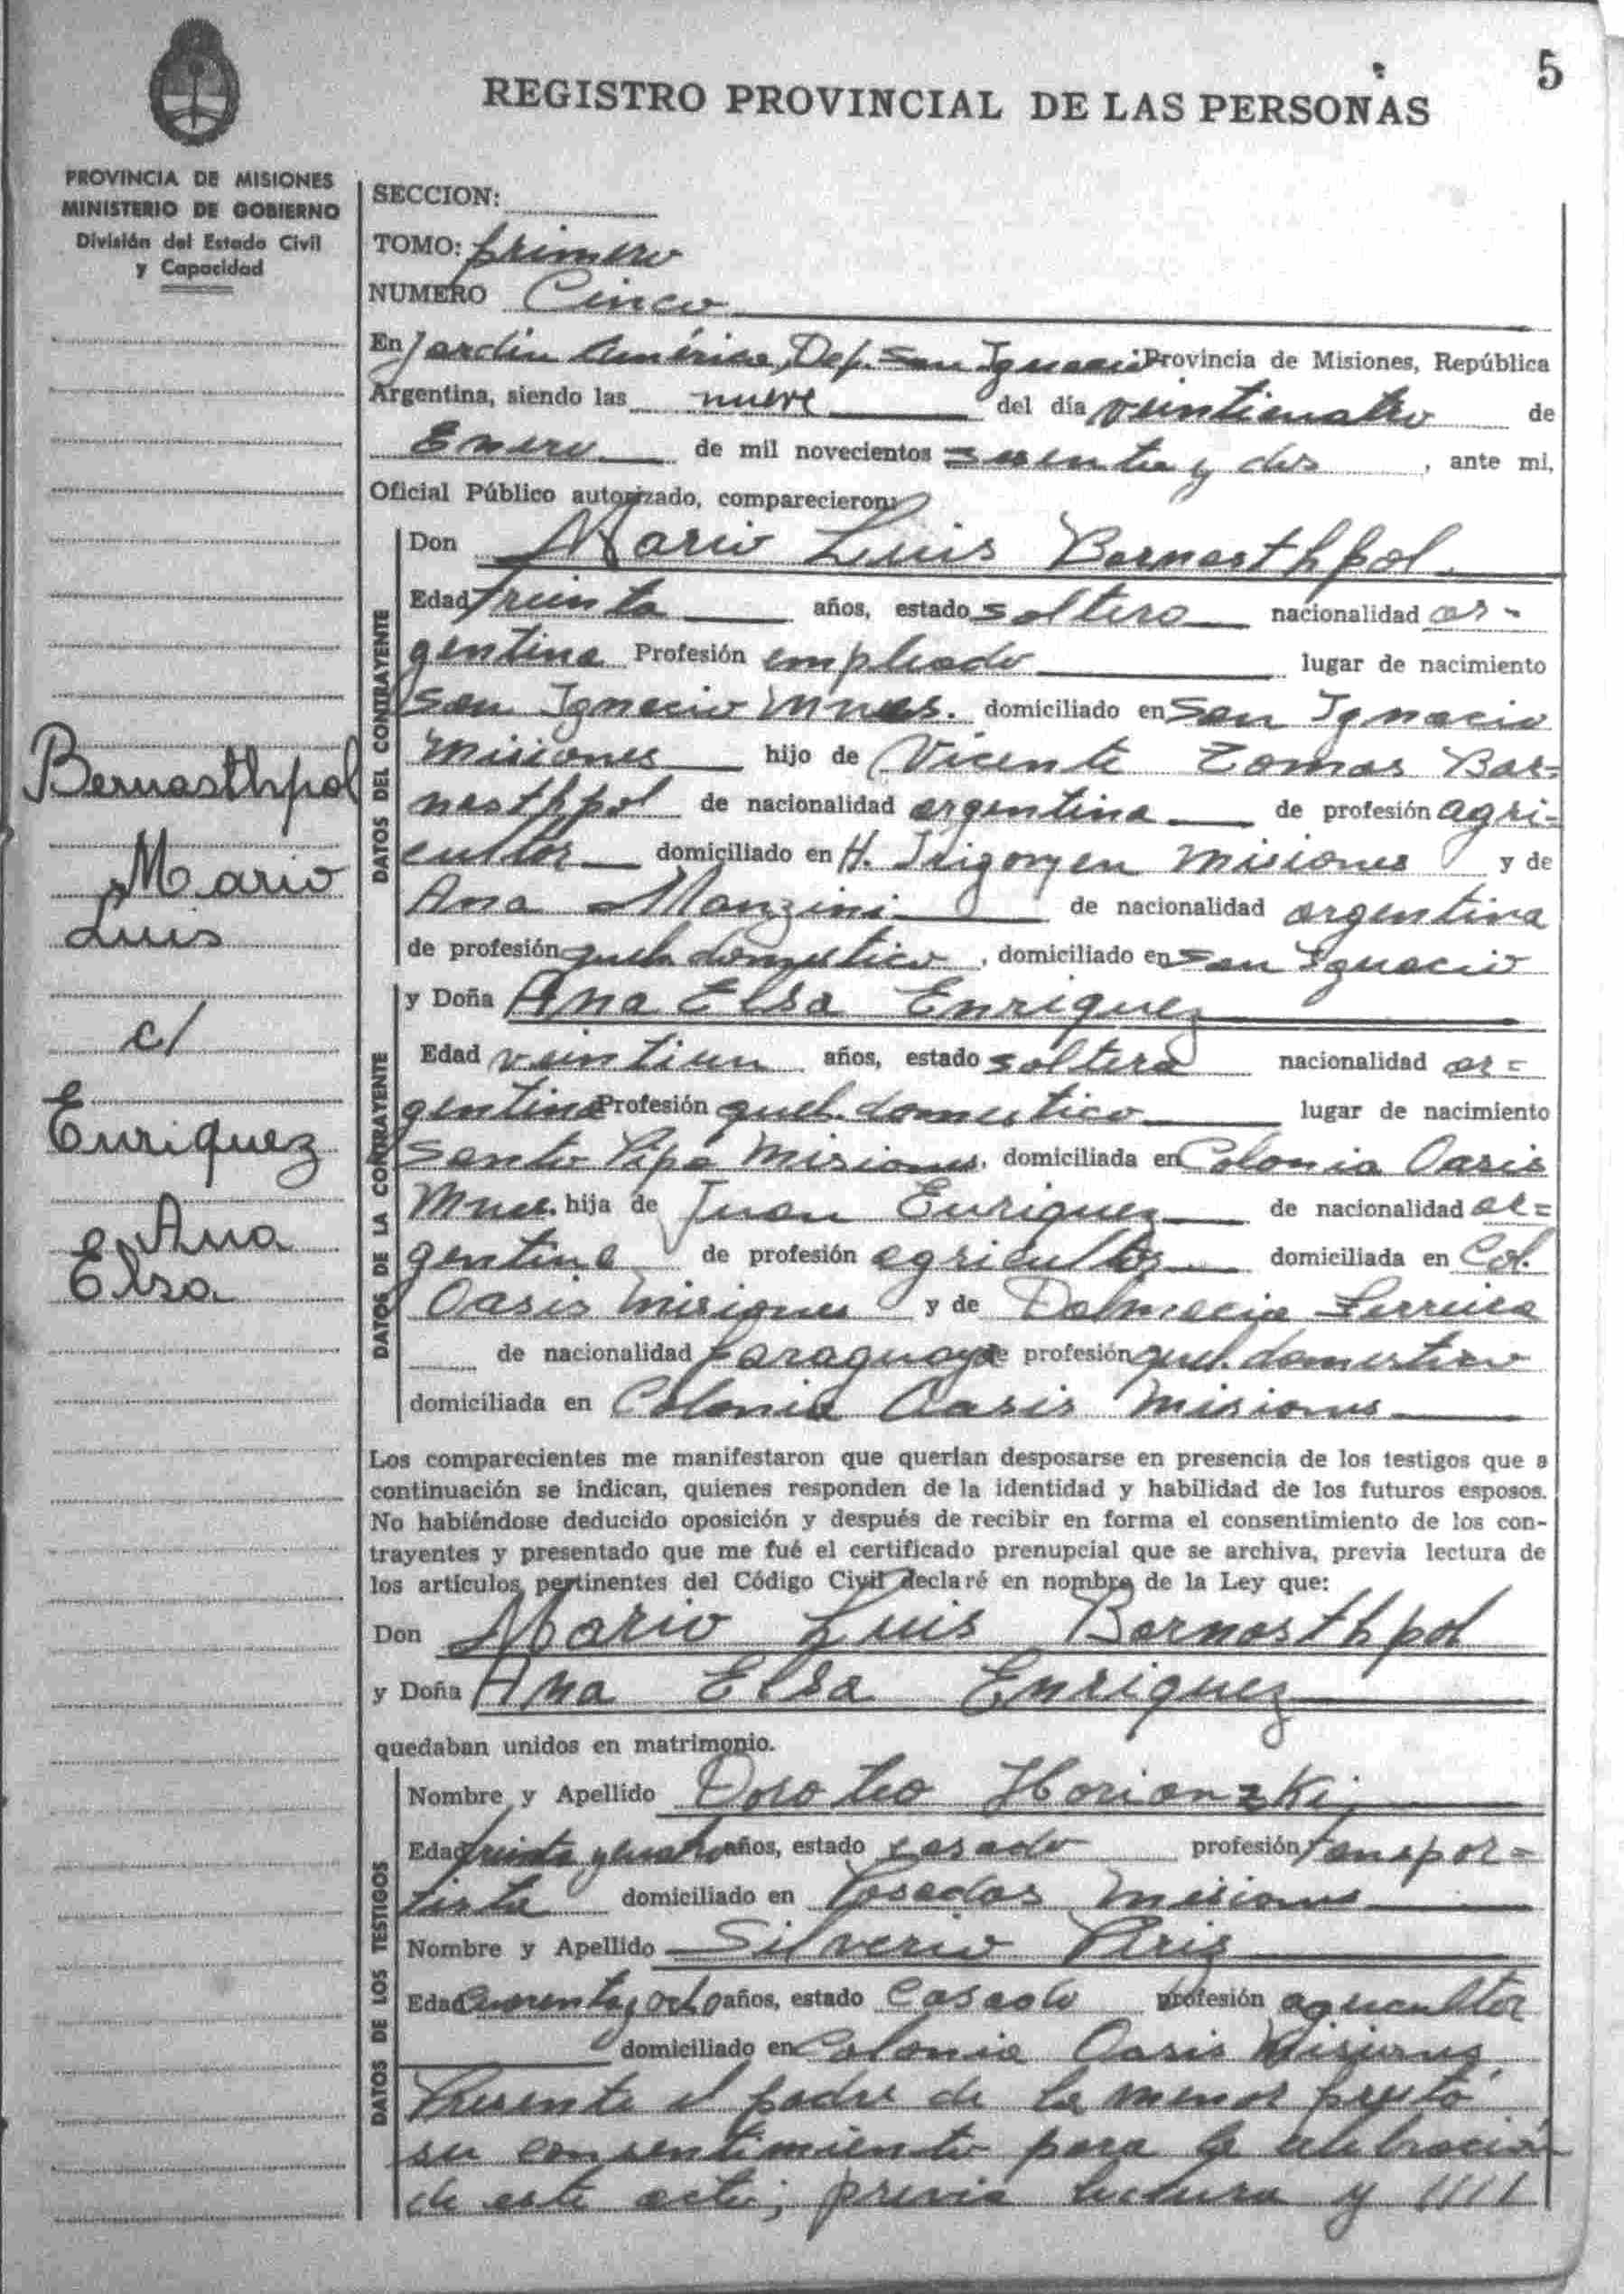 5
REGISTRO PROVINCIAL DE LAS PERSONAS
PROVINCIA DE MISIONES
MINISTERIO DE GOBIERNO
División del Estado Civil
y Capacidad
Bernasthpol
Mario
Luis
c/
Enriquez
Ana
Elsa
SECCION:
TOMO: primero
NUMERO Cinco
En Jardin America, Dep. San Ignacio Provincia de Misiones, República
Argentina, siendo las nueve del día veinticuatro de
Enero de mil novecientos sesenta y dos, ante mi,
Oficial Público autorizado, comparecieron:
DATOS DEL CONTRAYENTE
Don Mario Luis Bernasthpol
Edad treinta años, estado soltero nacionalidad ar-
gentina Profesión empleado lugar de nacimiento
San Ignacio Mnes. domiciliado en San Ignacio
Misiones hijo de Vicente Tomas Bar=
nasthpol de nacionalidad argentina de profesión agri=
cultor domiciliado en H. Irigoyen Misiones y de
Ana Manzini de nacionalidad argentina
de profesión queh domestico, domiciliado en San Ignacio
DATOS DE LA CONTRAYENTE
y Doña Ana Elsa Enriquez
Edad veintiun años, estado soltera nacionalidad ar=
gentina Profesión queh. domestico lugar de nacimiento
Santo Pipo Misiones, domiciliada en Colonia Oasis
Mnes. hija de Juan Enriquez de nacionalidad ar=
gentina de profesión agricultor domiciliada en Col.
Oasis Misiones y de Dalmacia Ferreira
de nacionalidad paraguaya de profesión queh. domestico
domiciliada en Colonia Oasis Misiones
Los comparecientes me manifestaron que querían desposarse en presencia de los testigos que a
continuación se indican, quienes responden de la identidad y habilidad de los futuros esposos.
No habiéndose deducido oposición y después de recibir en forma el consentimiento de los con-
trayentes y presentado que me fué el certificado prenupcial que se archiva, previa lectura de
los artículos pertinentes del Código Civil declaré en nombre de la Ley que:
Don Mario Luis Bernasthpol
y Doña Ana Elsa Enriquez
quedaban unidos en matrimonio.
DATOS DE LOS TESTIGOS
Nombre y Apellido Doroteo
Edad treinta y cuatro años, estado casado profesión transpor=
tista domiciliado en Posadas Misiones
Nombre y Apellido Silverio
Edad cuarenta y ocho años, estado casado profesión agricultor
domiciliado en Colonia Oasis Misiones
Presente el padre de la menor prestó
su consentimiento para la celebración
de este acto; previa lectura y ////